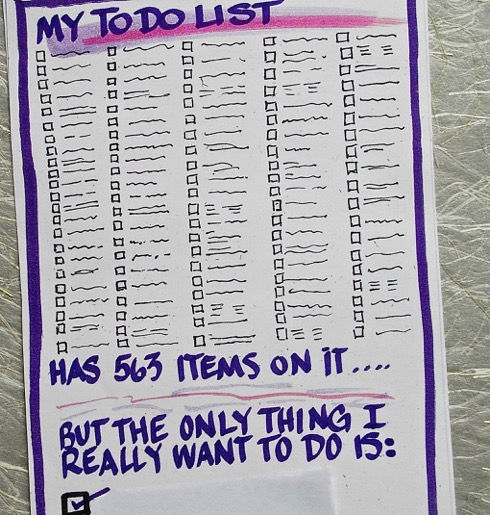 MY TO DO LIST
HAS 563 ITEMS ON IT....
BUT THE ONLY THING I
REALLY WANT TO DO IS: